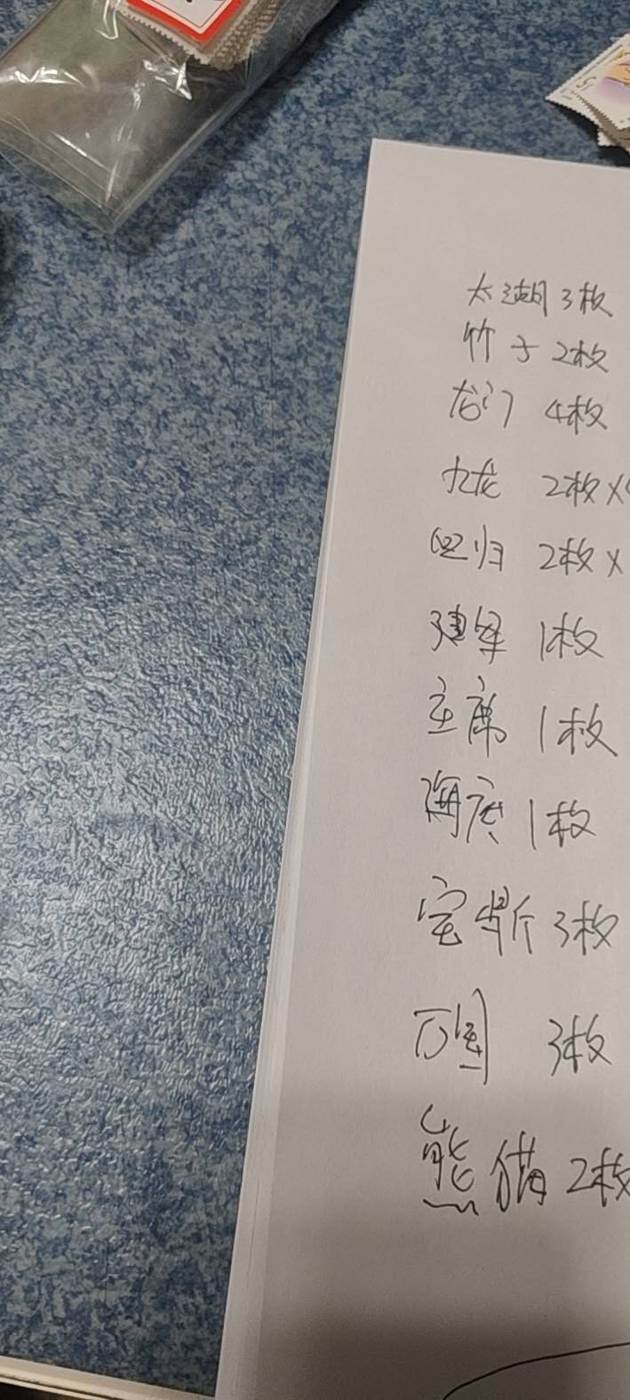 太湖 3枚
竹子 2枚
龙门 4枚
九龙 2枚 ×
回归 2枚 ×
建军 1枚
主席 1枚
海底 1枚
宝斋 3枚
万国 3枚
熊猫 2枚